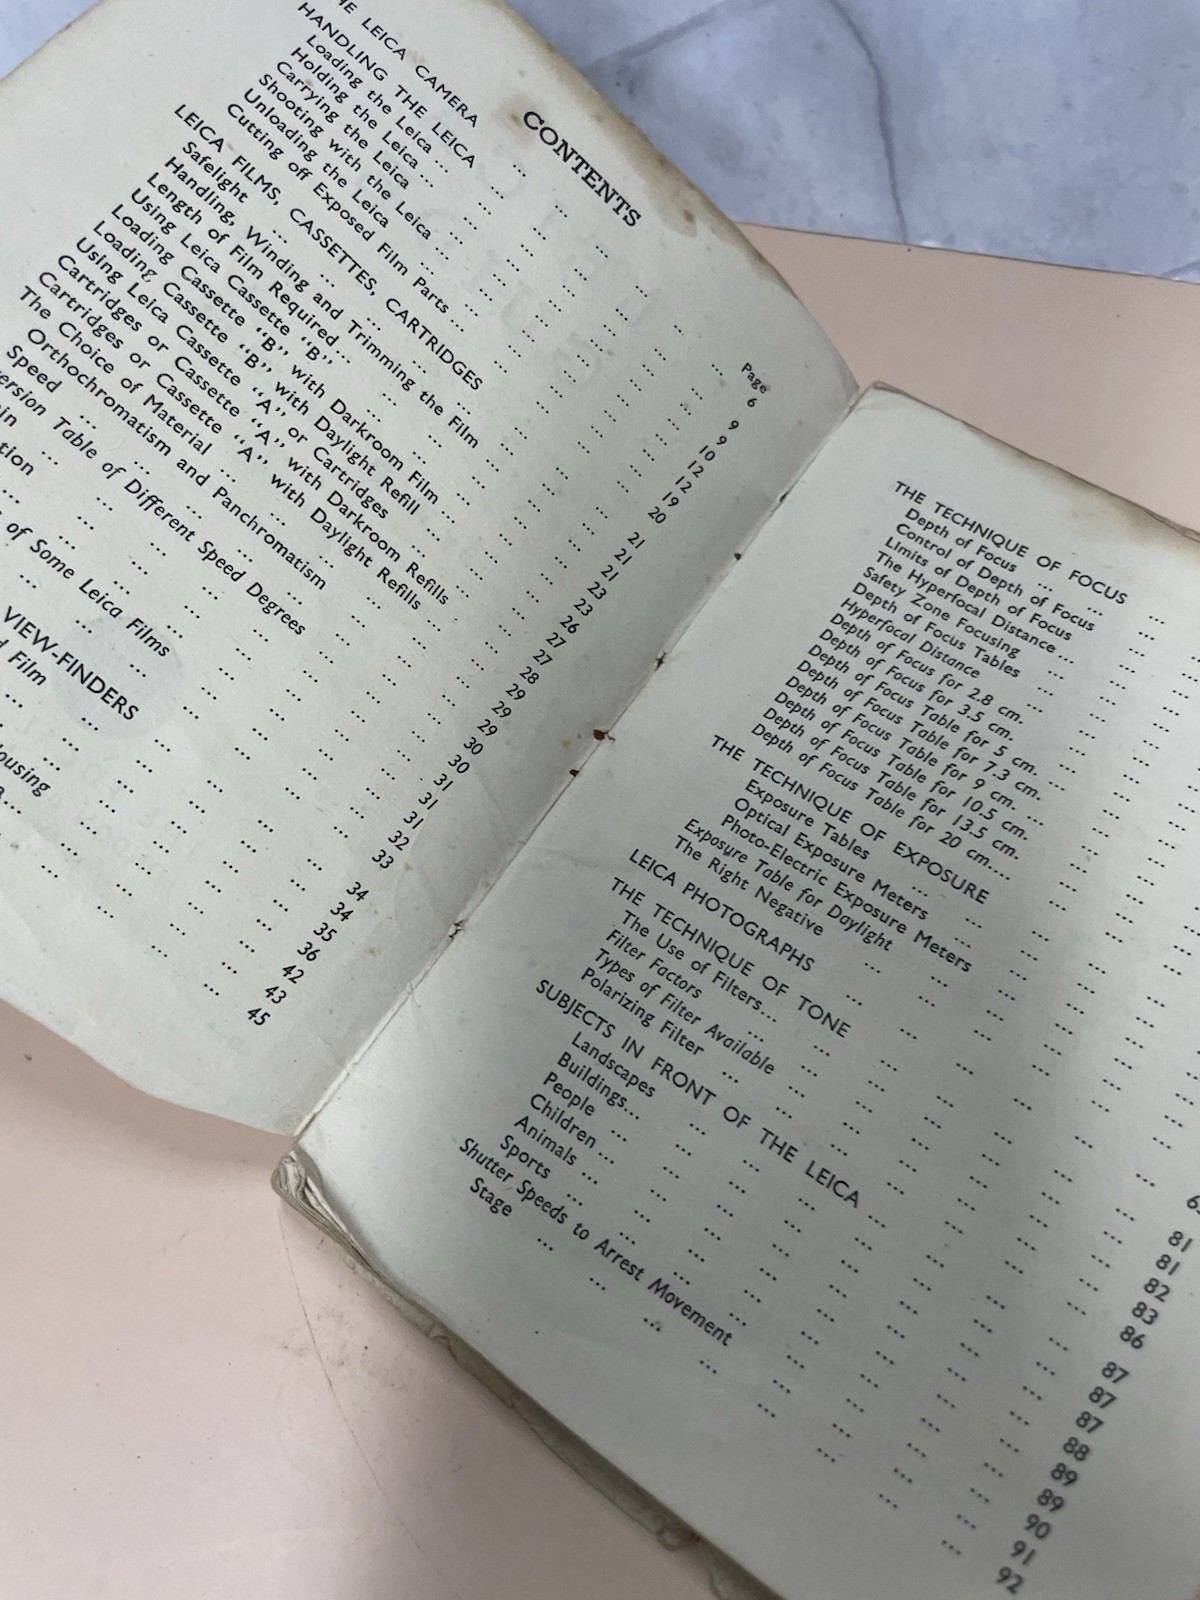 CONTENTS
Page
THE LEICA CAMERA ... 6
HANDLING THE LEICA ... 9
Loading the Leica ... 9
Holding the Leica ... 10
Carrying the Leica ... 12
Shooting with the Leica ... 12
Unloading the Leica ... 19
Cutting off Exposed Film Parts ... 20
LEICA FILMS, CASSETTES, CARTRIDGES ... 21
Safelight ... 21
Handling, Winding and Trimming the Film ... 21
Length of Film Required... 23
Using Leica Cassette "B" ... 23
Loading Cassette "B" with Darkroom Film ... 26
Loading Cassette "B" with Daylight Refill ... 27
Using Leica Cassette "A" or Cartridges ... 27
Cartridges or Cassette "A" with Darkroom Refills ... 28
Cartridges or Cassette "A" with Daylight Refills ... 29
The Choice of Material ... 29
Orthochromatism and Panchromatism ... 29
Speed ... 30
Table of Different Speed Degrees ... 30
31
31
32
of Some Leica Films ... 33
VIEW-FINDERS ... 34
Film ... 34
35
36
42
43
45
THE TECHNIQUE OF FOCUS ...
Depth of Focus ...
Control of Depth of Focus ...
Limits of Depth of Focus ...
The Hyperfocal Distance ...
Safety Zone Focusing ...
Depth of Focus Tables ...
Hyperfocal Distance ...
Depth of Focus for 2.8 cm. ...
Depth of Focus for 3.5 cm. ...
Depth of Focus Table for 5 cm. ...
Depth of Focus Table for 7.3 cm. ...
Depth of Focus Table for 9 cm. ...
Depth of Focus Table for 10.5 cm. ...
Depth of Focus Table for 13.5 cm. ...
Depth of Focus Table for 20 cm....
THE TECHNIQUE OF EXPOSURE ...
Exposure Tables ...
Optical Exposure Meters ...
Photo-Electric Exposure Meters ...
Exposure Table for Daylight ...
The Right Negative ...
LEICA PHOTOGRAPHS ...
THE TECHNIQUE OF TONE ... 81
The Use of Filters... 81
Filter Factors ... 82
Types of Filter Available ... 83
Polarizing Filter ... 86
SUBJECTS IN FRONT OF THE LEICA ... 87
Landscapes ... 87
Buildings... 87
People ... 88
Children ... 89
Animals ... 89
Sports ... 90
Shutter Speeds to Arrest Movement ... 91
Stage ... 92